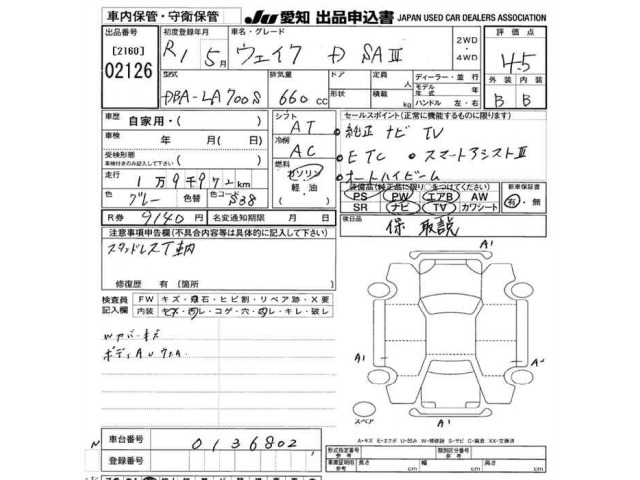 車内保管・守衛保管 JU 愛知 出品申込書 JAPAN USED CAR DEALERS ASSOCIATION
出品番号 初度登録年月 車名・グレード 2WD ・ 4WD 評価点
[2160] R1 5月 ウェイク D SAⅢ 4.5
02126 型式 排気量 ドア 定員 人 ディーラー・並行 外装 内装
DBA-LA700S 660cc 形状 積載 kg モデル年式 年 ハンドル 左・右 B B
車歴 自家用・( ) シフト AT セールスポイント(正常に機能するものに限ります)
車検 年 月( 日) 冷房 AC 純正 ナビ TV
受検形態 車検付きのみ記入して下さい ( ) 燃料 ETC ・スマートアシストⅢ
走行 1万9千972km ガソリン・軽・油 ・オートハイビーム
色 グレー 色替 色コード S38 装備品(純正品に限り○をつけてください) 新車保証書
R券 9140円 名変通知期限 月 日 PS PW エアB AW 有・無
SR ナビ TV カワシート
注意事項申告欄(不具合内容等は具体的に記入して下さい) 後日品 保 取説
スタッドレスT車内
修復歴 有(箇所
検査員記入欄 FW キズ・飛石・ヒビ割・リペア跡・X要
内装 キズ・汚レ・コゲ・穴・凹レ・キレ・破レ
Wアバーキズ
ボディAUウスA
A1
A1
A1
スペア
A-キズ E-エクボ U-凹み W-補修跡 S-サビ C-腐食 XX-交換済
車台番号 0136802
登録番号
形式指定番号 参考 類別区分番号 参考
車庫証明用 参考 長さ cm 幅 cm 高さ cm